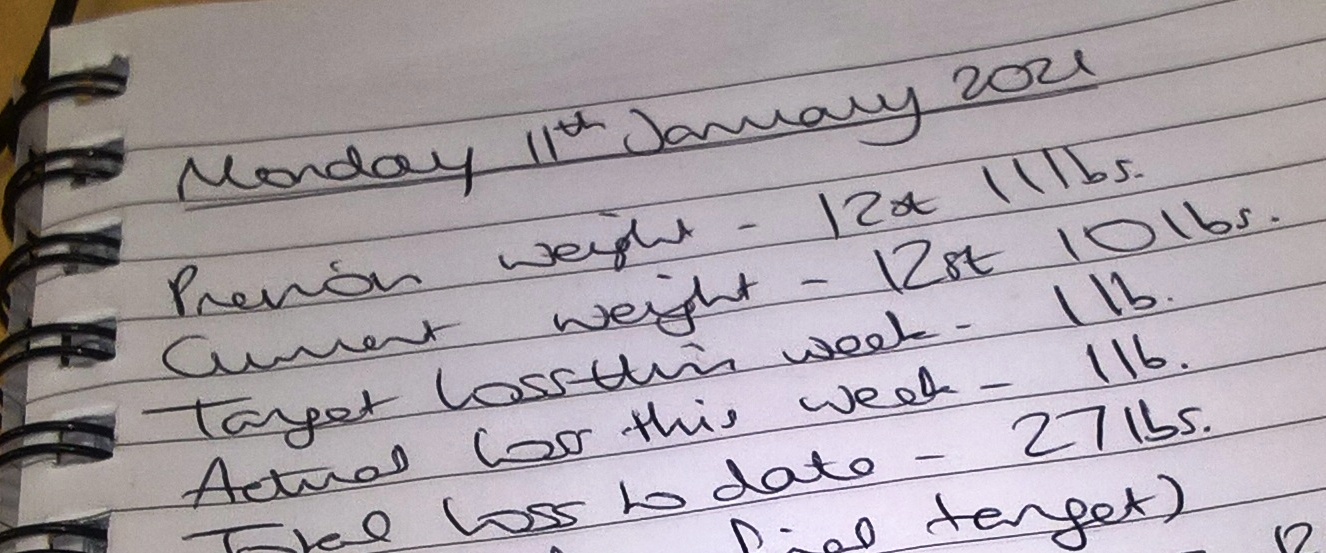 Monday 11th January 2021
Previous weight - 12st 11lbs.
Current weight - 12st 10lbs.
Target loss this week - 1lb.
Actual loss this week - 1lb.
Total loss to date - 27lbs.
final target)